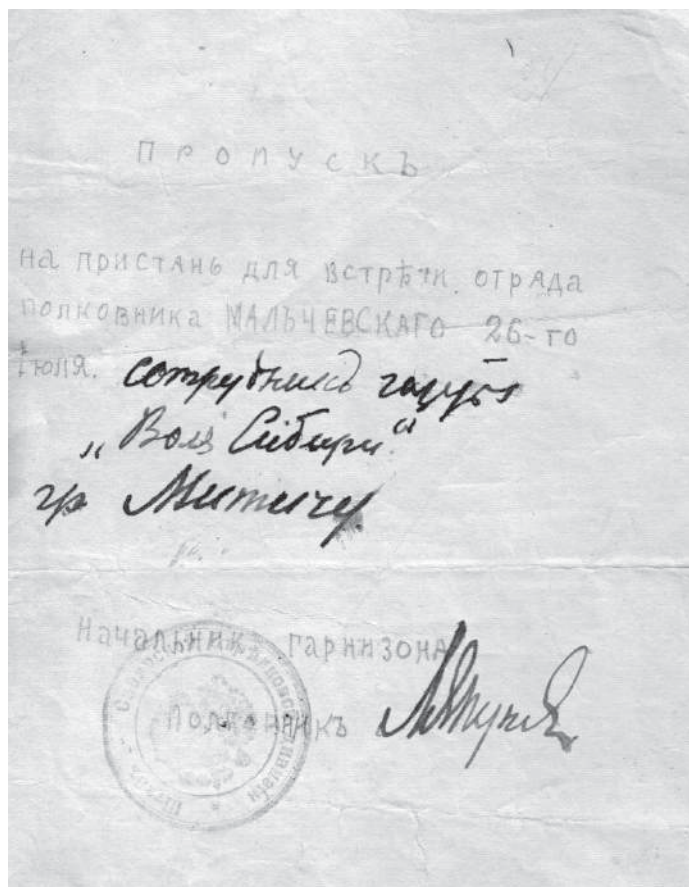 ПРОПУСКЪ
на пристань для встрѣчи отрада
полковника МАЛЬЧЕВСКАГО 26-го
іюля. сотруднику газеты
„Воля Сибири“
гр Митичу
Начальникъ гарнизона
Полковникъ